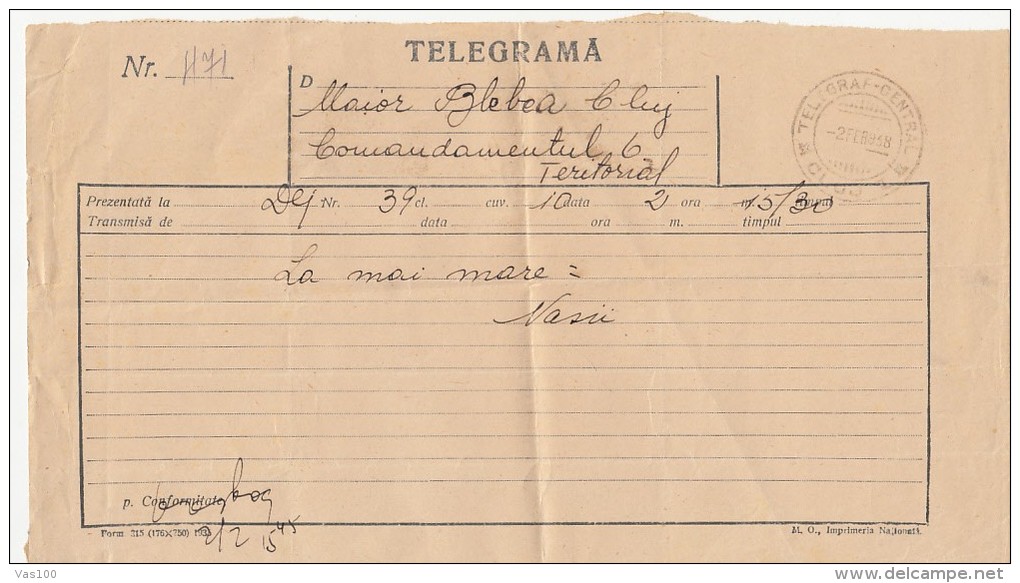 TELEGRAMĂ
Nr. 1171
D Maior Blebea Cluj
Comandamentul 6
Teritorial
TELEGRAF-CENTRAL
-2FEB938
CLUJ
Prezentată la Dej Nr. 39 cl. cuv. 10 data 2 ora 15/30 m. timpul
Transmisă de data ora m. timpul
La mai mare =
Nasii
p. Conformitate
2/2 15 45
Form 315 (176×750) 193
M. O., Imprimeria Națională.
Vas100
www.delcampe.net